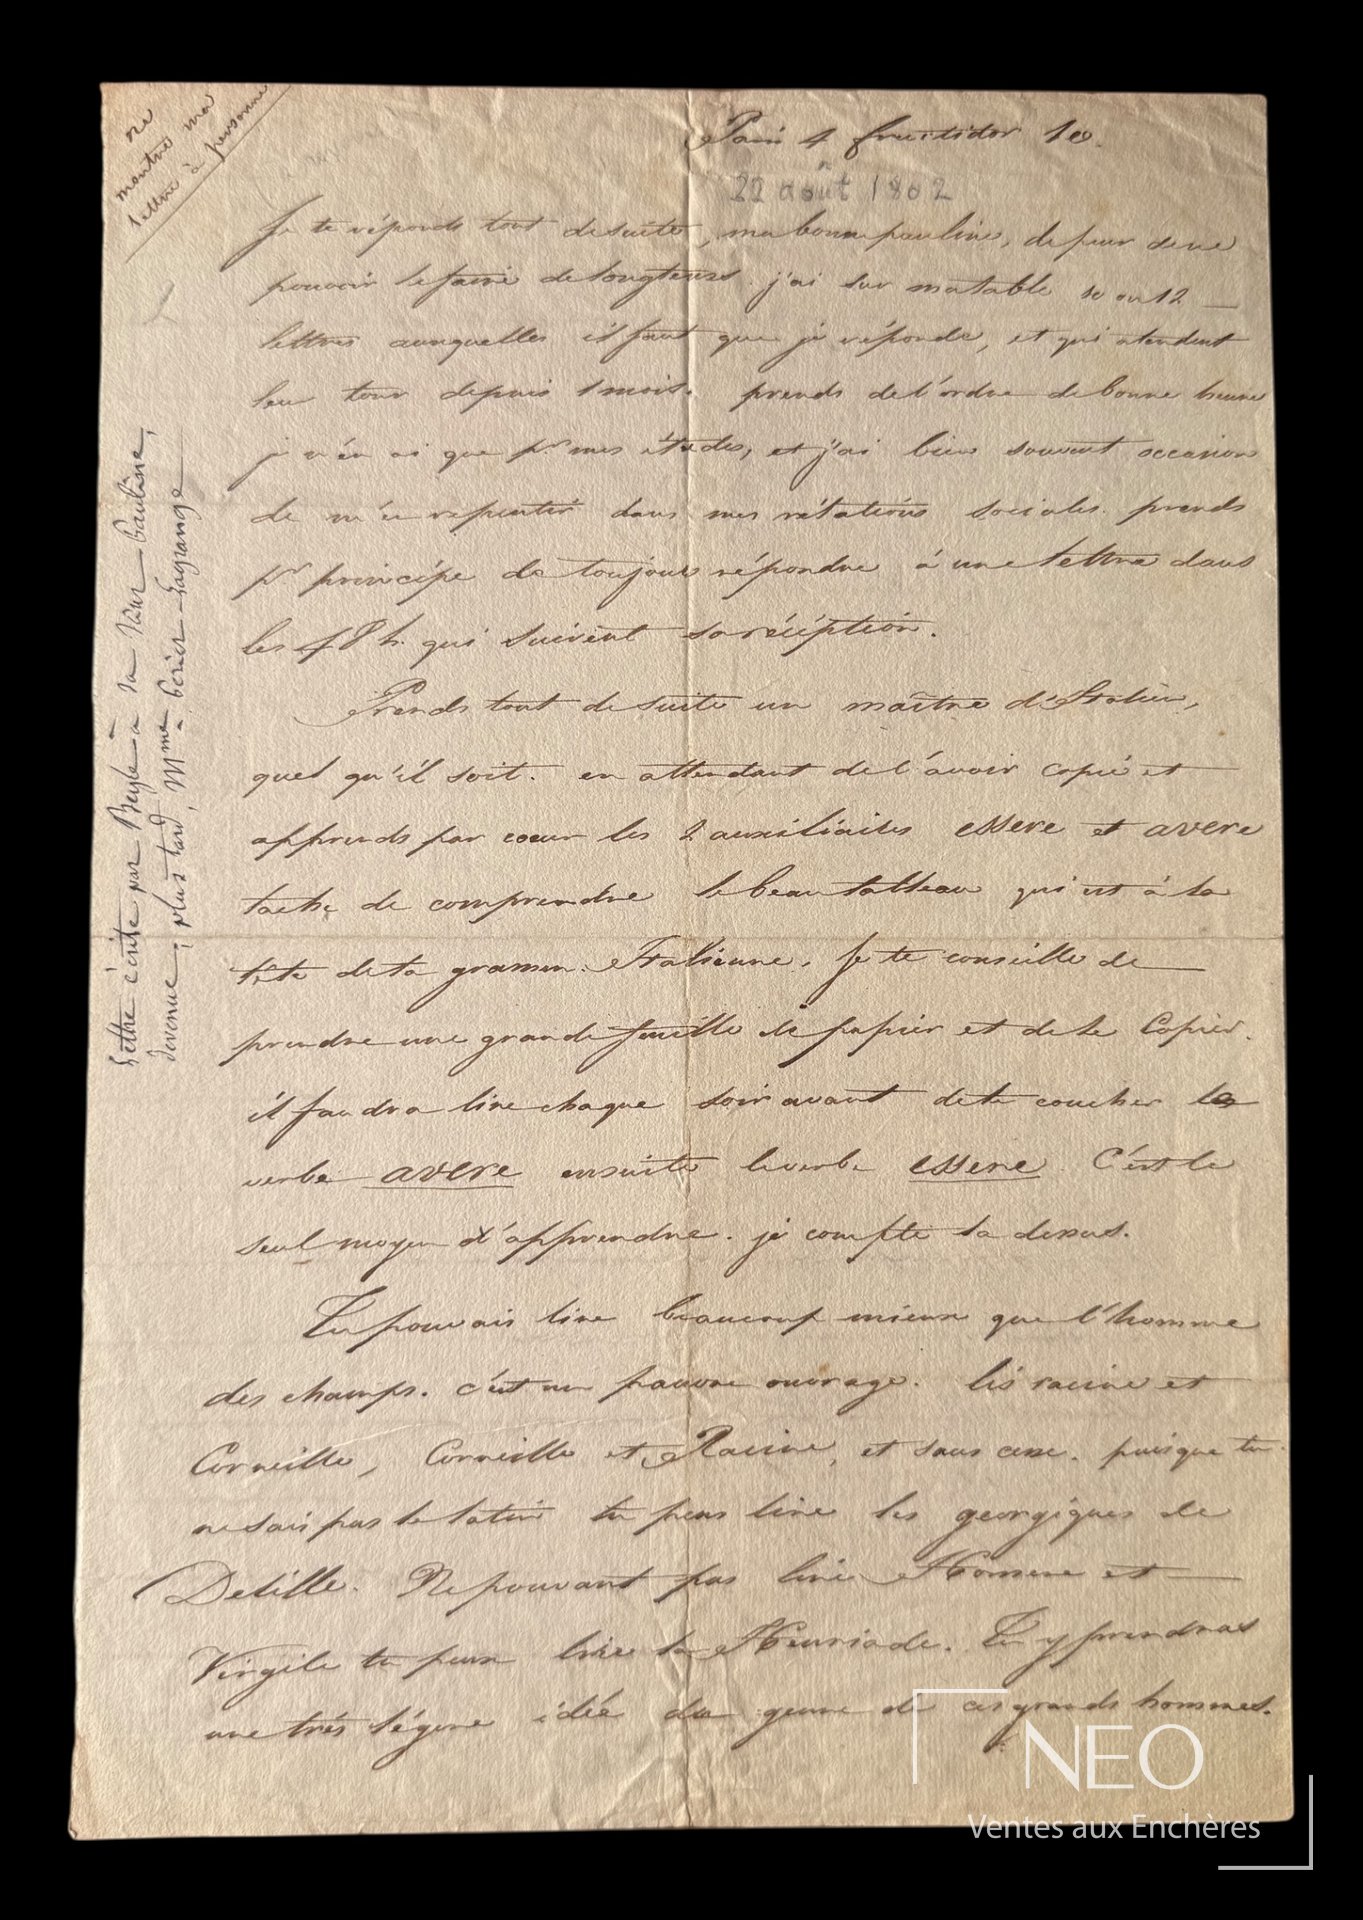 ne
montre ma
lettre à personne
Paris 4 fructidor 10.
22 août 1802
Je te réponds tout desuite, ma bonne pauline, de peur de ne
pouvoir le faire de longtems. j'ai sur matable 10 ou 12
lettres auxquelles il faut que je réponde, et qui atendent
leur tour depuis 1 mois. prends de l'ordre de bonne heure
je n'en ai que pr mes études, et j'ai bien souvent occasion
de m'en repentir dans mes rélations sociales. prends
pr principe de toujours répondre à une lettre dans
les 48 h. qui suivent sa réception.
Prends tout de suite un maître d'Italien,
quel qu'il soit. en attendant de l'avoir copie et
apprends par coeur les 2 auxiliaires essere et avere
tache de comprendre le beau tableau qui est à la
tête de ta gramm. Italienne. Je te conseille de
prendre une grande feuille de papier et de le Copier.
il faudra lire chaque soir avant de te coucher le
verbe avere ensuite le verbe essere C'est le
seul moyen d'apprendre. je compte la dessus.
Tu pouvais lire beaucoup mieux que l'homme
des champs. c'est un pauvre ouvrage. lis racine et
Corneille, Corneille et Racine, et sans cesse. puisque tu
ne sais pas le latin tu peux lire les georgiques de
Delille. Ne pouvant pas lire Homere et
Virgile tu peux lire la Henriade. Tu y prendras
une très légere idée du genre de ces grands hommes.
Lettre écrite par Beyle à sa sœur Pauline,
devenue, plus tard, Mme Périer-Lagrange
NEO
Ventes aux Enchères